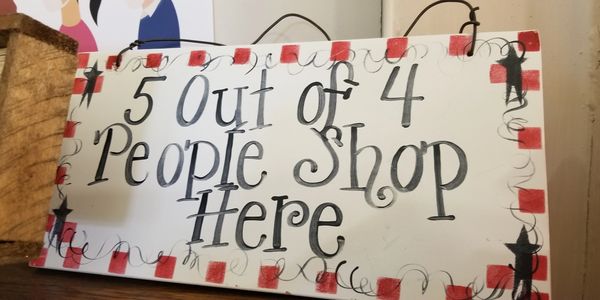 5 Out of 4
People Shop
Here